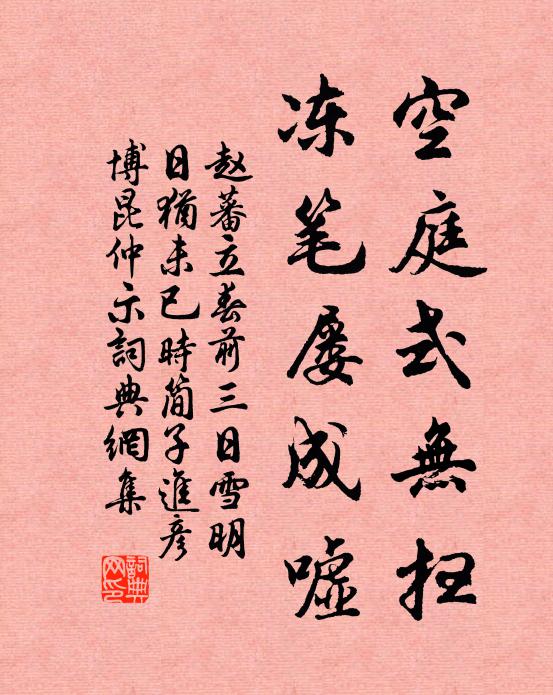 空庭式無扫
冻笔屡成嘘
赵蕃立春前三日雪明
日猶未已時简子進彦
博昆仲示詞典網集
詞典网印